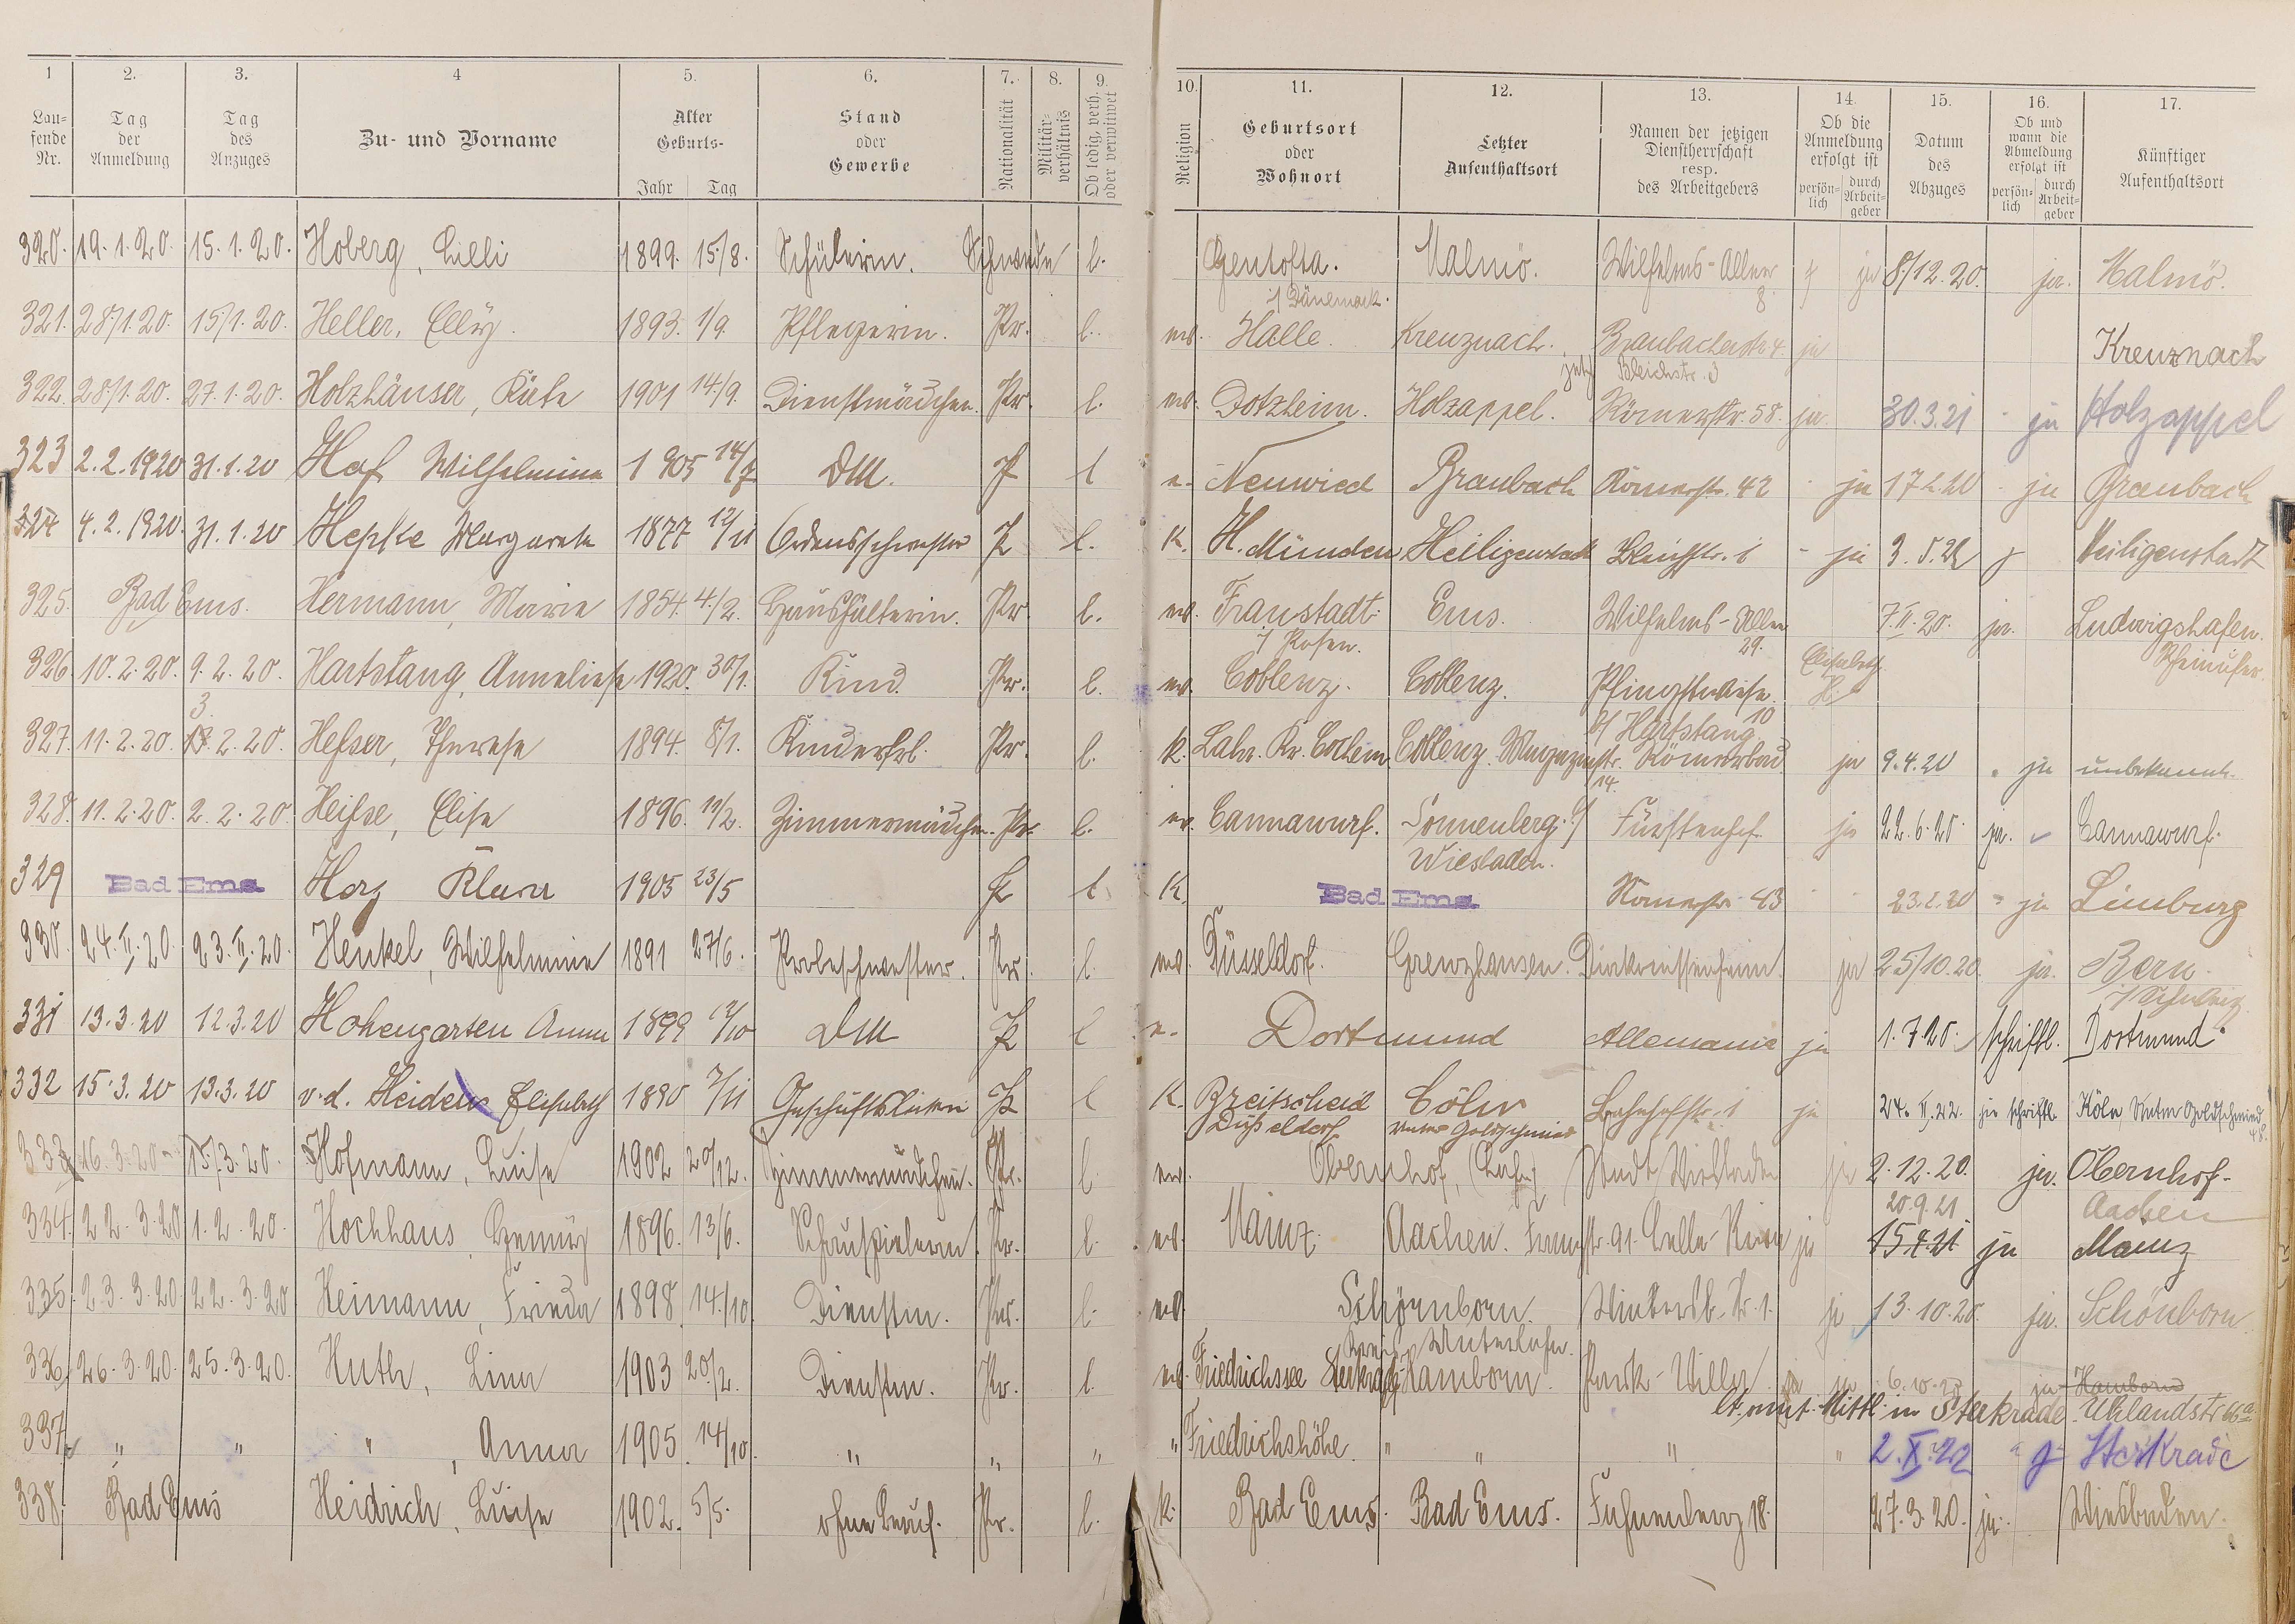 1 2. 3. 4 5. 6. 7. 8. 9. 10. 11. 12. 13. 14. 15. 16. 17.
Lau-fende Nr. Tag der Anmeldung Tag des Anzuges Zu- und Vorname Alter Geburts- Jahr Tag Stand oder Gewerbe Nationalität Militär-verhältnis Ob ledig, verh. oder verwitwet Religion Geburtsort oder Wohnort Letzter Aufenthaltsort Namen der jetzigen Dienstherrschaft resp. des Arbeitgebers Ob die Anmeldung erfolgt ist persön-lich durch Arbeit-geber Datum des Abzuges Ob und wann die Abmeldung erfolgt ist persön-lich durch Arbeit-geber Künftiger Aufenthaltsort
320. 19.1.20. 15.1.20. Hoberg, Lilli 1899. 15/8. Schülerin. Schwede l. Gentofta. Malmö. Wilhelms-Allee ja 8/12.20. ja. Malmö.
i/ Dänemark. 8.
321. 28/1.20. 15/1.20. Heller, Elly. 1893. 1/9. Pflegerin. Pr. l. ev. Halle. Kreuznach. Braubacherstr. 4 ja Kreuznach
jetzt Bleichstr. 3
322. 28/1.20. 27.1.20. Holzhäuser, Käte 1901 14/9. Dienstmädchen. Pr. l. ev. Dotzheim. Holzappel. Römerstr. 58. ja. 30.3.21 - ja Holzappel
323 2.2.1920 31.1.20 Haf Wilhelmine 1905 14/7 DM. P l e. Neuwied Braubach Römerstr. 42 - ja 17.2.20 - ja Braubach
324 4.2.1920. 31.1.20 Hepke Margarete 1877 12/11 Ordensschwester P l. K. H. Münden Heiligenstadt Bleichstr. 1 - ja 3.5.21 Heiligenstadt
325. Bad Ems. Hermann, Marie 1854. 4./2. Haushälterin. Pr. l. ev. Fraustadt Ems. Wilhelms-Allee 7.II.20. ja. Ludwigshafen.
i/ Posen. 29. Rheinufer.
326. 10.2.20. 9.2.20. Hartstang, Anneliese 1920. 30/1. Kind. Pr. l. ev. Coblenz. Coblenz. Pfingstwiese. Elisabeth H.
3. b/ Hartstang. 10
327. 11.2.20. 2.20. Hesser, Therese 1894. 8/1. Kinderfrl. Pr. l. K. Lahr. Kr. Cochem Coblenz. Magazinstr. Römerbad ja 9.4.20 - ja unbekannt.
14.
328. 11.2.20. 2.2.20. Heise, Elise 1896. Zimmermädchen. Pr. l. ev. Cannawurf. Sonnenberg b/ Fürstenhof. ja 22.6.20. ja. Cannawurf.
Wiesbaden.
329 Bad Ems. Horz Klara 1905 23/5 P l K. Bad Ems. Römerstr. 43 23.2.20 - ja Limburg
330. 24.II.20. 23.II.20. Henkel, Wilhelmine 1891 27/6. Probeschwester. Pr. l. ev. Düsseldorf. Grenzhausen. Diakonissenheim. ja 25/10.20. ja. Bern.
i/ Schweiz.
331 13.3.20 12.3.20 Hohengarten Anna 1899 12/10 DM P l e. Dortmund Allemania ja 1.7.20. schriftl. Dortmund.
332 15.3.20 13.3.20 v.d. Heiden Elisabeth 1890 7/11 Geschäftsleiterin P l K. Breitscheid Cöln Bahnhofstr. 1 ja 24.II.22. ja schriftl. Köln, Unter Goldschmied
Düsseldorf Unter Goldschmied 48.
333 16.3.20 15/3.20. Hofmann, Luise 1902 20/12. Zimmermädchen. Pr. l. ev. Obernhof, (Lahn) Stadt Wiesbaden ja 2.12.20. ja. Obernhof.
20.9.21 Aachen
334. 22.3.20 1.2.20. Hochhaus, Henny 1896. 13/6. Schauspielerin. Pr. l. ev. Mainz. Aachen. Franzstr. 91. ja 15.4.21 ja Mainz
335. 23.3.20. 22.3.20 Heimann, Frieda 1898 14./10 Dienstm. Pr. l. ev. Schönborn. Wintersb. Str. 1. ja 13.10.20. ja. Schönborn.
Kreis Unterlahn.
336. 26.3.20. 25.3.20. Huth, Lina 1903 20./2. Dienstm. Pr. l. ev. Friedrichssee Sterkrade Hamborn. Park-Villa ja 6.10.20 ja Hamborn
lt. amt. Mittl. in Sterkrade Uhlandstr. 66a
337. " " " , Anna 1905. 14/10. " " " " Friedrichshöhe. " " " " 2.X.22 " ja Sterkrade
338. Bad Ems Heidrich, Luise 1902. 5/5. ohne Beruf. Pr. l. K. Bad Ems. Bad Ems. 18. 27.3.20. ja. Wiesbaden.